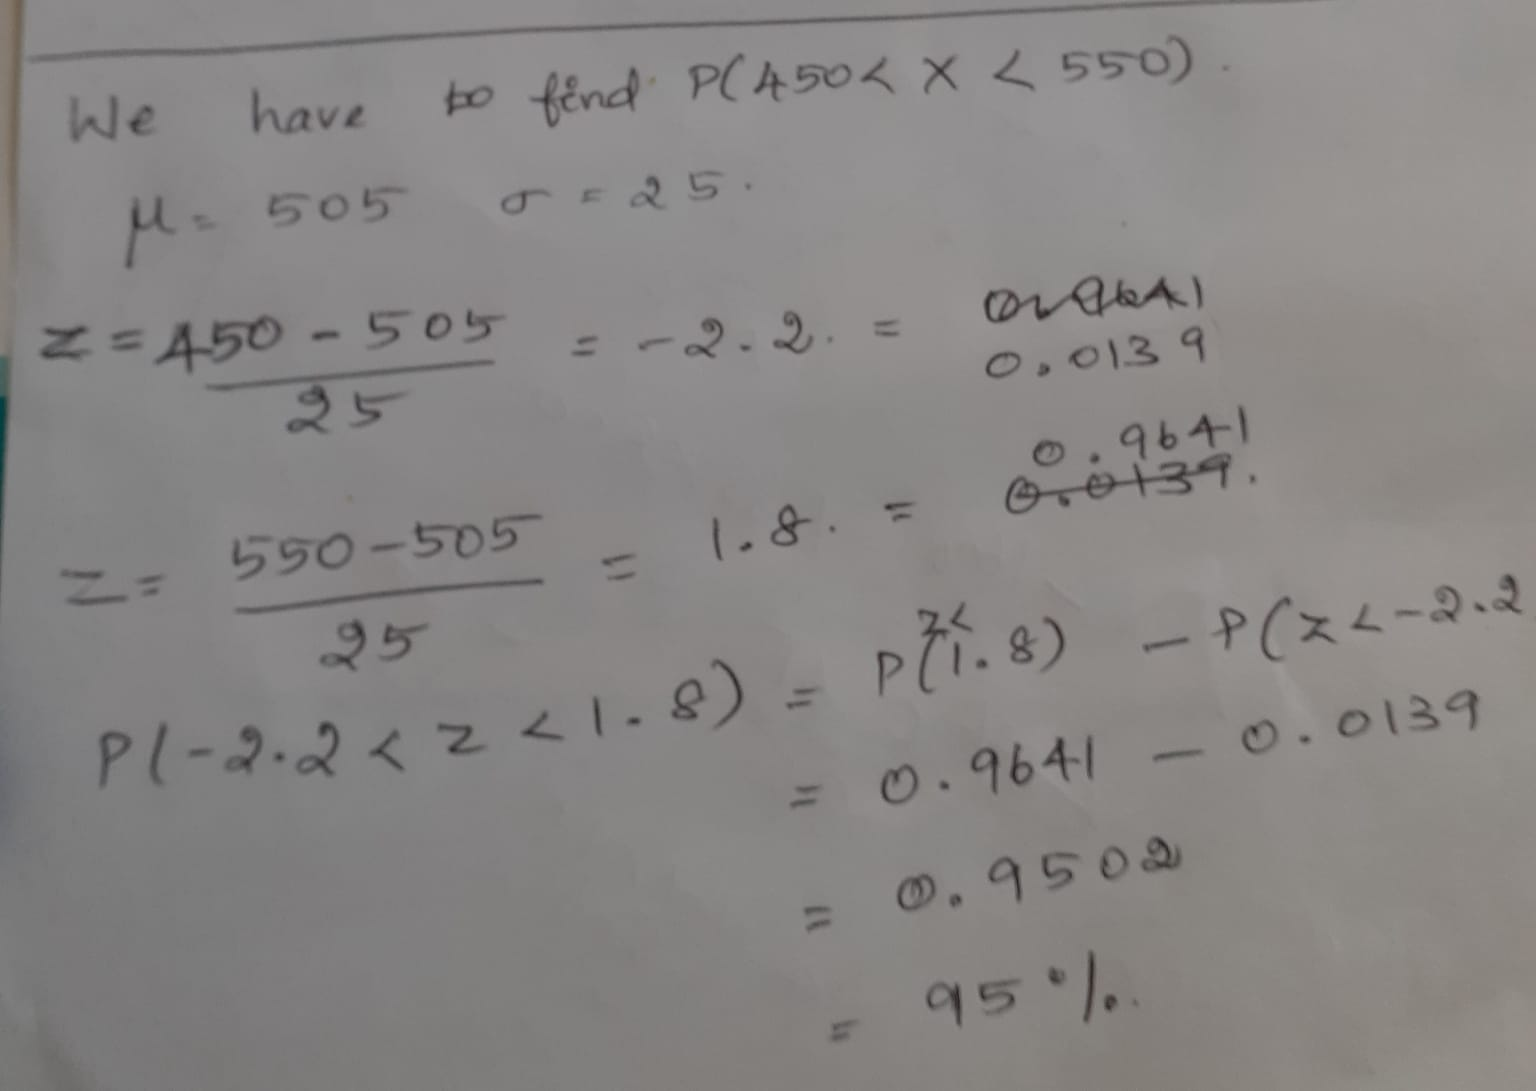 We have to find P(450 < X < 550).
μ = 505 σ = 25.
z = 450 - 505 / 25 = -2.2. = 0.0139
z = 550 - 505 / 25 = 1.8. = 0.9641
0.0139.
P(-2.2 < z < 1.8) = P(z< 1.8) - P(z < -2.2
= 0.9641 - 0.0139
= 0.9502
= 95%.